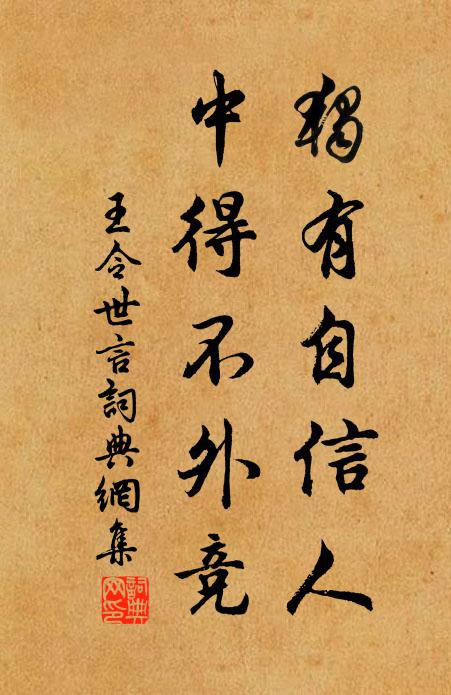 獨有自信人
中得不外竞
王令世言詞典網集
詞典網印